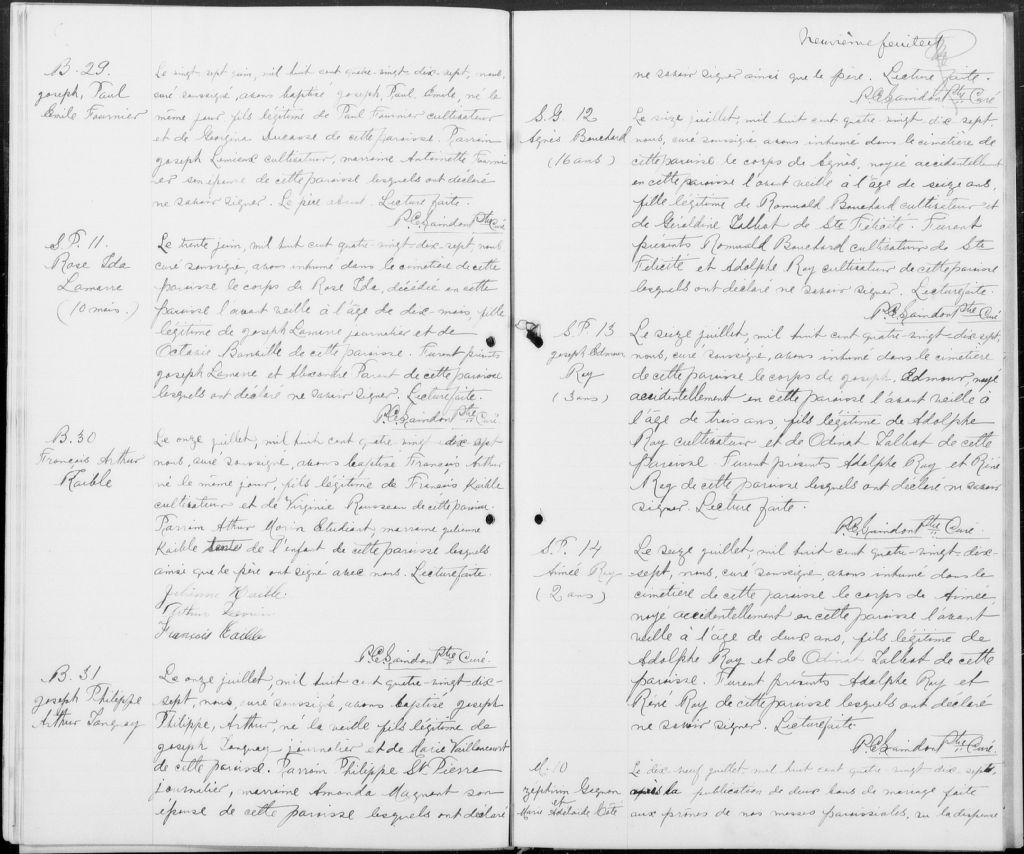 B-29.
Joseph, Paul
Emile Fournier
Le vingt-sept juin, mil huit cent quatre-vingt-dix-sept, nous,
curé soussigné, avons baptisé Joseph, Paul, Emile, né le
même jour fils légitime de Paul Fournier cultivateur
et de Georgina de cette paroisse. Parrain
Joseph Lemieux cultivateur, marraine Antoinette Fourni-
er son épouse de cette paroisse lesquels ont déclaré
ne savoir signer. Le père absent. Lecture faite.
P.C. Saindon Ptre Curé
S.P. 11.
Rose Ida
Lamerre
(10 mois.)
Le trente juin, mil huit cent quatre-vingt-dix-sept, nous
curé soussigné, avons inhumé dans le cimetière de cette
paroisse le corps de Rose Ida, décédée en cette
paroisse l'avant veille à l'âge de dix mois, fille
légitime de Joseph Lamerre journalier et de
Octavie Banville de cette paroisse. Furent présents
Joseph Lamerre et Alexandre Parent de cette paroisse
lesquels ont déclaré ne savoir signer. Lecture faite.
P.C. Saindon Ptre Curé
B. 30
François Arthur
Kaible
Le onze juillet, mil huit cent quatre-vingt-dix sept
nous, curé soussigné, avons baptisé François Arthur
né le même jour, fils légitime de François Kaible
cultivateur et de Virginie Rousseau de cette paroisse.
Parrain Athur Morin Etudiant, marraine Julienne
Kaible tante de l'enfant de cette paroisse lesquels
ainsi que le père ont signé avec nous. Lecture faite.
Julienne Kaible
Arthur
François Kaible
P.C. Saindon Ptre Curé.
B. 31
Joseph Philippe
Arthur Tanguay
Le onze juillet, mil huit cent quatre-vingt-dix-
sept, nous, curé soussigné, avons baptisé Joseph
Philippe, Arthur, né la veille fils légitime de
Joseph Tanguay journalier et de Marie Vaillancourt
de cette paroisse. Parrain Philippe St Pierre
journalier, marraine Amanda Magnant son
épouse de cette paroisse lesquels ont déclaré
Neuvième feuillet
ne savoir signer ainsi que le père. Lecture faite.
P.C. Saindon Ptre Curé
S.G. 12
Agnès Bouchard
(16 ans)
Le seize juillet, mil huit cent quatre-vingt dix sept
nous, curé soussigné avons inhumé dans le cimetière de
cette paroisse le corps de Agnès, noyée accidentellement
en cette paroisse l'avant veille à l'âge de seize ans,
fille légitime de Romuald Bouchard cultivateur et
de Géraldine Talbot de Ste Félicité. Furent
présents Romuald Bouchard cultivateur de Ste
Félicité et Adolphe Roy cultivateur de cette paroisse
lesquels ont déclaré ne savoir signer. Lecture faite.
P.C. Saindon Ptre Curé
S.P. 13
Joseph Edmour
Roy
(3 ans)
Le seize juillet, mil huit cent quatre-vingt-dix sept,
nous, curé soussigné, avons inhumé dans le cimetière
de cette paroisse le corps de Joseph, Edmour, noyé
accidentellement en cette paroisse l'avant veille à
l'âge de trois ans, fils légitime de Adolphe
Roy cultivateur et de Odinat Talbot de cette
paroisse Furent présents Adolphe Roy et Réné
Roy de cette paroisse lesquels ont déclaré ne savoir
signer. Lecture faite.
P.C. Saindon Ptre Curé.
S.P. 14
Aimée Roy
(2 ans)
Le seize juillet, mil huit cent quatre-vingt-dix-
sept, nous, curé soussigné, avons inhumé dans le
cimetière de cette paroisse le corps de Aimée
noyé accidentellement en cette paroisse l'avant
veille à l'âge de deux ans, fils légitime de
Adolphe Roy et de Odinat Talbot de cette
paroisse. Furent présents Adolphe Roy et
Réné Roy de cette paroisse lesquels ont déclaré
ne savoir signer. Lecture faite.
P.C. Saindon Ptre Curé.
M. 10
Zéphirin Gagnon
et
Marie Adélaïde Côté
Le dix-neuf juillet mil huit cent quatre-vingt dix-sept,
après la publication de deux bans de mariage faite
aux prônes de nos messes paroissiales, vu la dispense